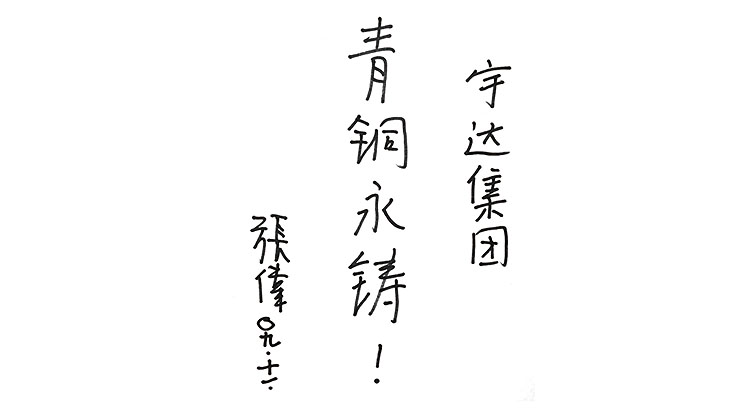 宇达集团
青铜永铸！
張偉
〇九.十一.